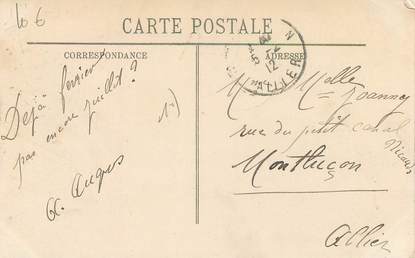 106
CARTE POSTALE
CORRESPONDANCE
ADRESSE
ALLIER
12
Déjà février
pas encore juillet ?
1)
M Melle Joanny
rue du petit canal
Montluçon
Allier